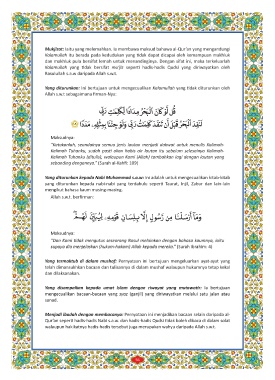 Mukjizat: Iaitu yang melemahkan. Ia membawa maksud bahawa al-Qur'an yang mengandungi
Kalamullah itu berada pada kedudukan yang tidak dapat dicapai oleh kemampuan makhluk
dan makhluk pula bersifat lemah untuk menandinginya. Dengan sifat ini, maka terkeluarlah
Kalamullah yang tidak bersifat mukjizat seperti hadis-hadis Qudsi yang diriwayatkan oleh
Rasulullah s.a.w. daripada Allah s.w.t.
Yang diturunkan: Ini bertujuan untuk mengecualikan Kalamullah yang tidak diturunkan oleh
Allah s.w.t sebagaimana firman-Nya:
قُل لَّوْ كَانَ ٱلْبَحْرُ مِدَادًا لِّكَلِمَٰتِ رَبِّى
لَنَفِدَ ٱلْبَحْرُ قَبْلَ أَن تَنفَدَ كَلِمَٰتُ رَبِّى وَلَوْ جِئْنَا بِمِثْلِهِۦ مَدَدًا
Maksudnya:
"Katakanlah, seandainya semua jenis lautan menjadi dakwat untuk menulis Kalimah-
Kalimah Tuhanku, sudah pasti akan habis air lautan itu sebelum selesainya Kalimah-
Kalimah Tuhanku (ditulis), walaupun Kami (Allah) tambahkan lagi dengan lautan yang
sebanding dengannya." (Surah al-Kahfi: 109)
Yang diturunkan kepada Nabi Muhammad s.a.w: Ini adalah untuk mengecualikan kitab-kitab
yang diturunkan kepada nabi-nabi yang terdahulu seperti Taurat, Injil, Zabur dan lain-lain
mengikut bahasa kaum masing-masing.
Allah s.w.t. berfirman:
وَمَآ أَرْسَلْنَا مِن رَّسُولٍ إِلَّا بِلِسَانِ قَوْمِهِۦ لِيُبَيِّنَ لَهُمْ
Maksudnya:
"Dan Kami tidak mengutus seseorang Rasul melainkan dengan bahasa kaumnya, iaitu
supaya dia menjelaskan (hukum-hakam) Allah kepada mereka." (Surah Ibrahim: 4)
Yang termaktub di dalam mushaf: Pernyataan ini bertujuan mengeluarkan ayat-ayat yang
telah dimansuhkan bacaan dan tulisannya di dalam mushaf walaupun hukumnya tetap kekal
dan dilaksanakan.
Yang disampaikan kepada umat Islam dengan riwayat yang mutawatir: Ia bertujuan
mengecualikan bacaan-bacaan yang syaz (ganjil) yang diriwayatkan melalui satu jalan atau
sanad.
Menjadi ibadah dengan membacanya: Pernyataan ini menjadikan bacaan selain daripada al-
Qur'an seperti hadis-hadis Nabi s.a.w. dan hadis-hadis Qudsi tidak boleh dibaca di dalam solat
walaupun hakikatnya hadis-hadis tersebut juga merupakan wahyu daripada Allah s.w.t.